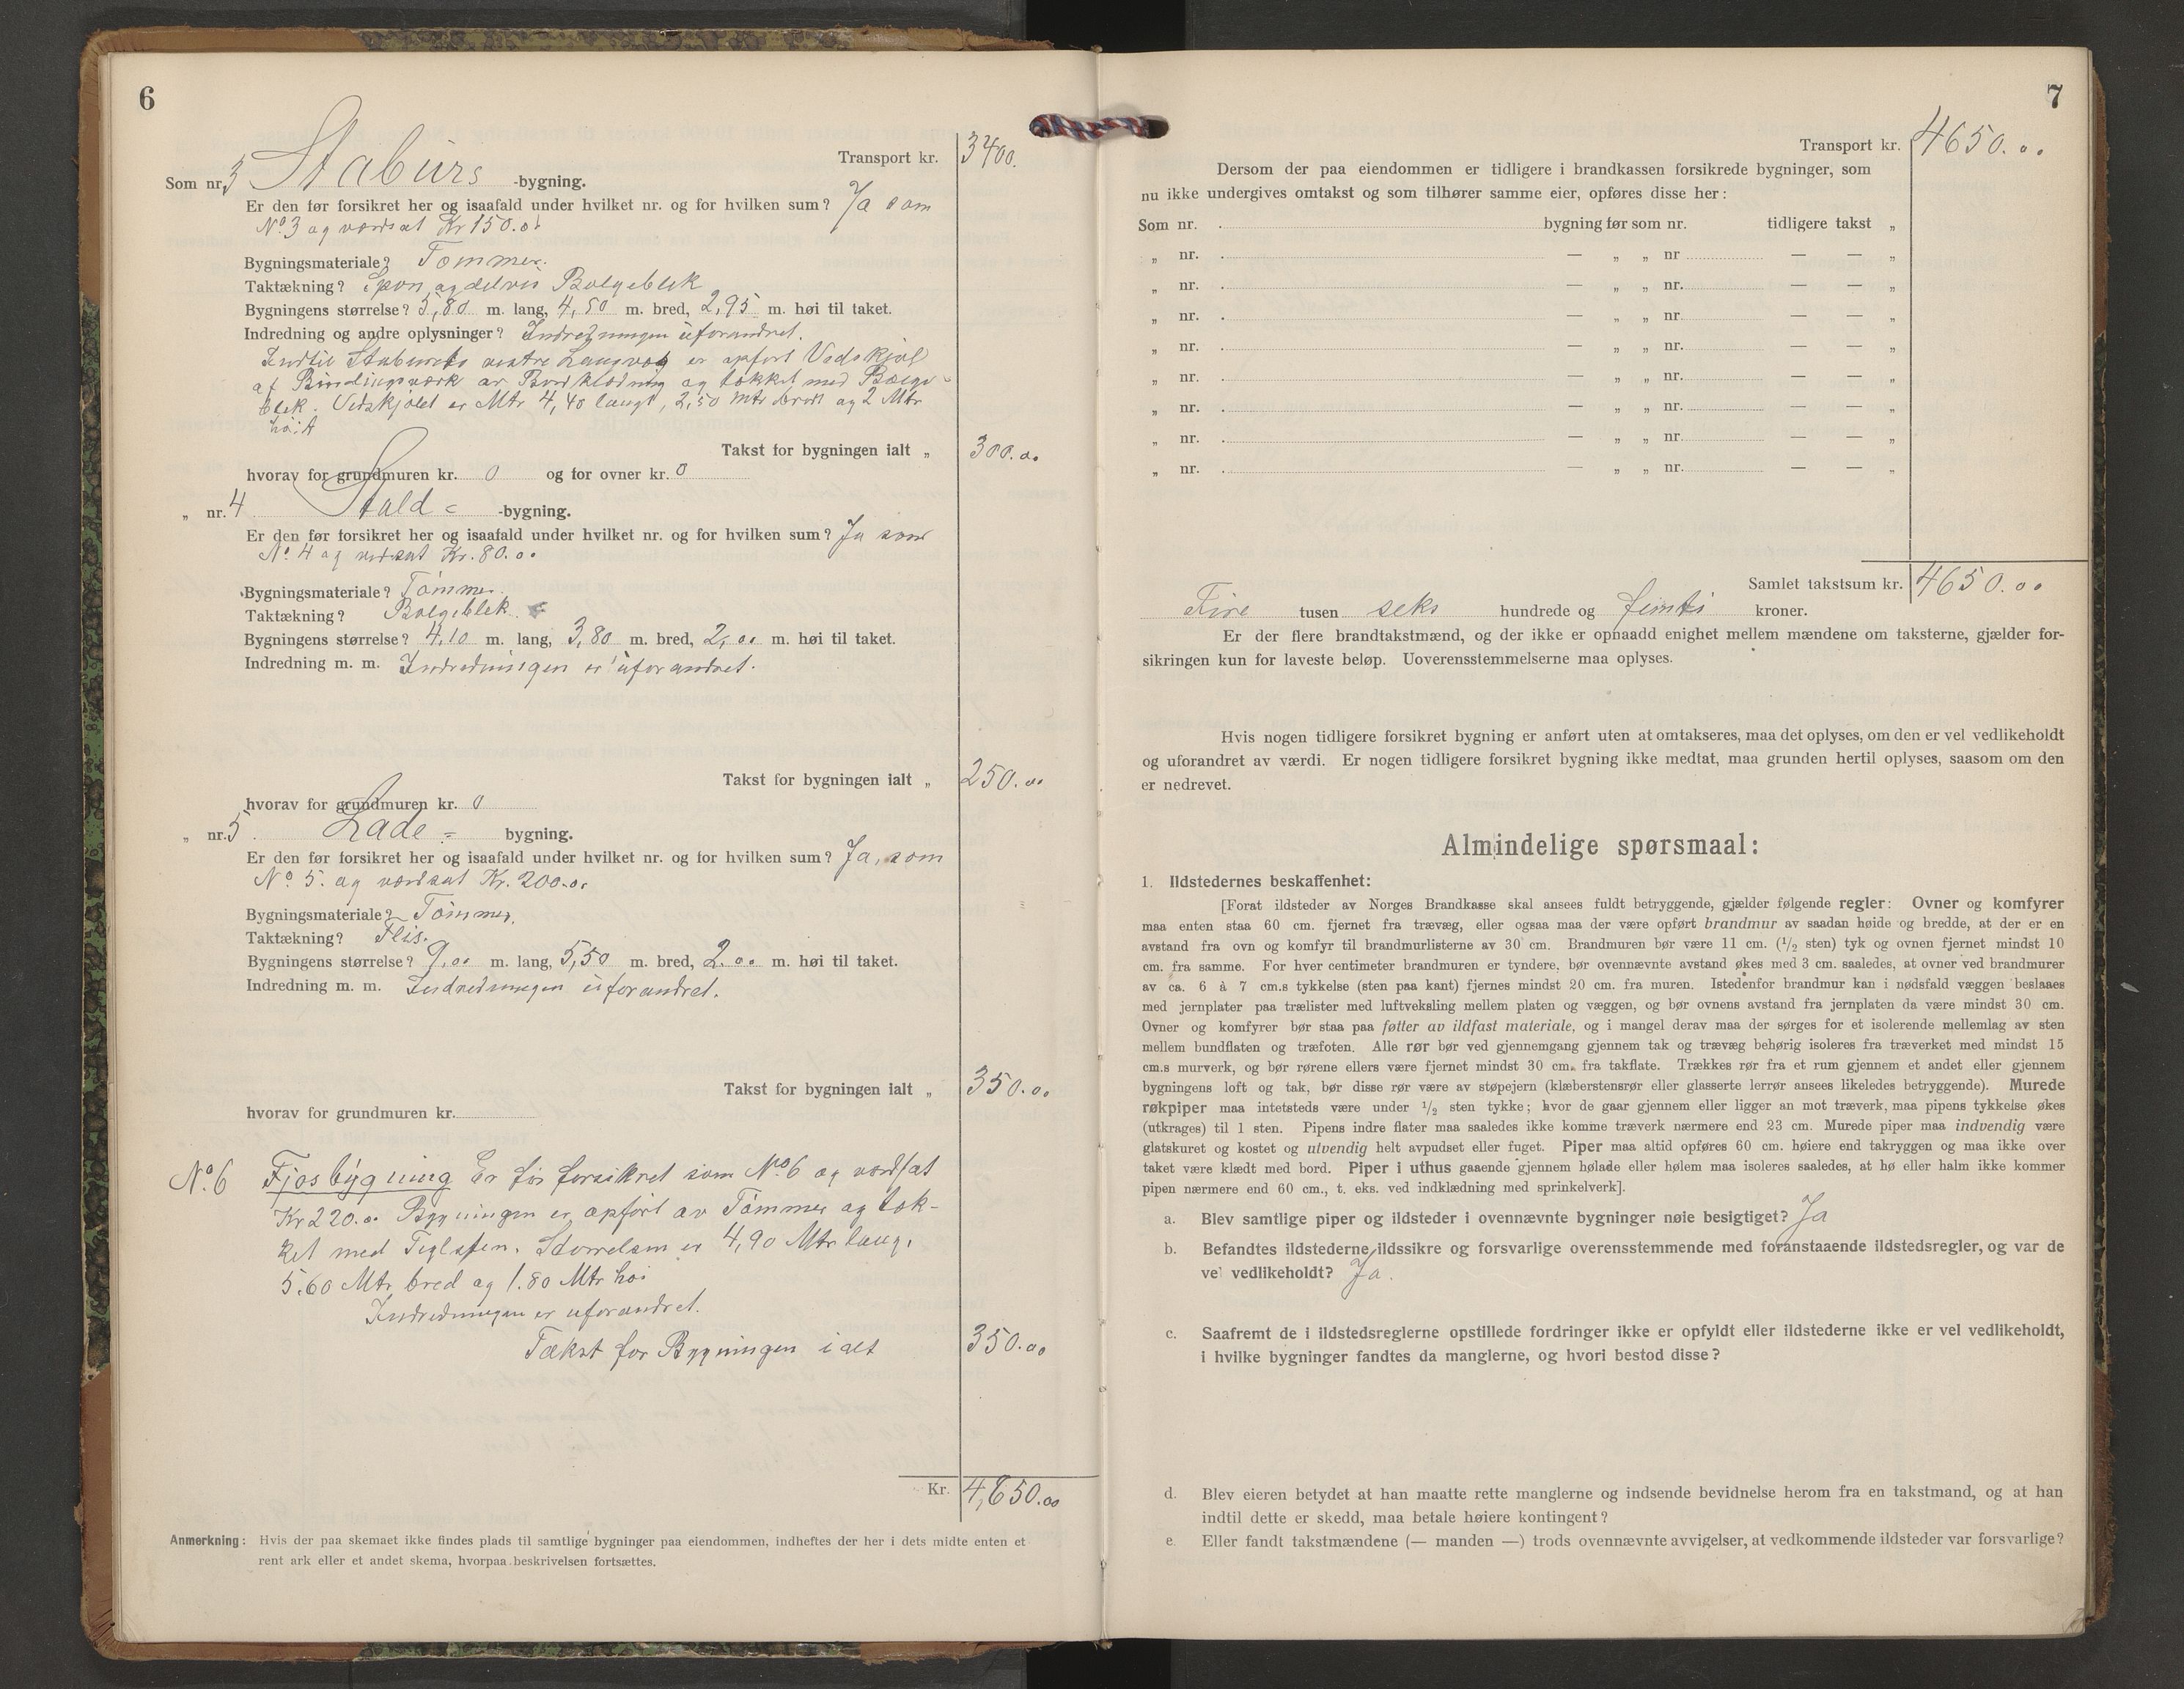 6
Transport kr. 3400.
Som nr. 3 Staburs -bygning.
Er den før forsikret her og isaafald under hvilket nr. og for hvilken sum? Ja som
No. 3 og værdsat Kr 150.00
Bygningsmateriale? Tømmer.
Taktækning? Spon og delvis Bølgeblek
Bygningens størrelse? 5,80 m. lang, 4,50 m. bred, 2,95 m. høi til taket.
Indredning og andre oplysninger? Indredningen uforandret.
Indtil Staburets vestre Langvæg er opført Vedskjøl
af Bindingsværk av Bordklædning og tækket med Bølge-
blek. Vedskjølet er Mtr 4,40 langt, 2,50 Mtr bredt og 2 Mtr
høit
Takst for bygningen ialt „ 300.00
hvorav for grundmuren kr. 0 og for ovner kr. 0
„ nr. 4 Stald = -bygning.
Er den før forsikret her og isaafald under hvilket nr. og for hvilken sum? Ja som
No. 4 og værdsat Kr. 80.00
Bygningsmateriale? Tømmer.
Taktækning? Bølgeblek.
Bygningens størrelse? 4,10 m. lang, 3,80 m. bred, 2,00 m. høi til taket.
Indredning m. m. Indredningen er uforandret.
Takst for bygningen ialt „ 250.00
hvorav for grundmuren kr. 0
„ nr. 5 Lade = bygning.
Er den før forsikret her og isaafald under hvilket nr. og for hvilken sum? Ja, som
No. 5. og værdsat Kr. 200.00
Bygningsmateriale? Tømmer.
Taktækning? Flis.
Bygningens størrelse? 9,00 m. lang, 5,50 m. bred, 2.00 m. høi til taket.
Indredning m. m. Indredningen uforandret.
Takst for bygningen ialt „ 350.00
hvorav for grundmuren kr.
No. 6 Fjøsbygning Er før forsikret som No. 6 og værdsat
Kr 220.00 Bygningen er opført av Tømmer og tæk-
ket med Teglsten. Størrelsen er 4,90 Mtr lang.
5.60 Mtr bred og 1.80 Mtr høi
Indredningen er uforandret.
Takst for Bygningen ialt 350.00
Kr. 4,650.00
Anmerkning: Hvis der paa skemaet ikke findes plads til samtlige bygninger paa eiendommen, indheftes der her i dets midte enten et
rent ark eller et andet skema, hvorpaa beskrivelsen fortsættes.
7
Transport kr. 4650.00
Dersom der paa eiendommen er tidligere i brandkassen forsikrede bygninger, som
nu ikke undergives omtakst og som tilhører samme eier, opføres disse her:
Som nr. bygning før som nr. tidligere takst „
„ nr. — „ „ nr — — „
„ nr. — „ „ nr. — — „
„ nr. — „ „ nr. — — „
„ nr. — „ „ nr. — — „
„ nr. — „ „ nr. — — „
„ nr. — „ „ nr. — — „
„ nr. — „ „ nr. — — „
„ nr. — „ „ nr. — — „
Samlet takstsum kr. 4650.00
Fire tusen seks hundrede og femti kroner.
Er der flere brandtakstmænd, og der ikke er opnaadd enighet mellem mændene om taksterne, gjælder for-
sikringen kun for laveste beløp. Uoverensstemmelserne maa oplyses.
Hvis nogen tidligere forsikret bygning er anført uten at omtakseres, maa det oplyses, om den er vel vedlikeholdt
og uforandret av værdi. Er nogen tidligere forsikret bygning ikke medtat, maa grunden hertil oplyses, saasom om den
er nedrevet.
Almindelige spørsmaal:
1. Ildstedernes beskaffenhet:
[Forat ildsteder av Norges Brandkasse skal ansees fuldt betryggende, gjælder følgende regler: Ovner og komfyrer
maa enten staa 60 cm. fjernet fra trævæg, eller ogsaa maa der være opført brandmur av saadan høide og bredde, at der er en
avstand fra ovn og komfyr til brandmurlisterne av 30 cm. Brandmuren bør være 11 cm. (1/2 sten) tyk og ovnen fjernet mindst 10
cm. fra samme. For hver centimeter brandmuren er tyndere, bør ovennævnte avstand økes med 3 cm. saaledes, at ovner ved brandmurer
av ca. 6 à 7 cm.s tykkelse (sten paa kant) fjernes mindst 20 cm. fra muren. Istedenfor brandmur kan i nødsfald væggen beslaaes
med jernplater paa trælister med luftveksling mellem platen og væggen, og bør ovnens avstand fra jernplaten da være mindst 30 cm.
Ovner og komfyrer bør staa paa føtter av ildfast materiale, og i mangel derav maa der sørges for et isolerende mellemlag av sten
mellem bundflaten og træfoten. Alle rør bør ved gjennemgang gjennem tak og trævæg behørig isoleres fra træverket med mindst 15
cm.s murverk, og bør rørene ellers være fjernet mindst 30 cm. fra takflate. Trækkes rør fra et rum gjennem et andet eller gjennem
bygningens loft og tak, bør disse rør være av støpejern (klæberstensrør eller glasserte lerrør ansees likeledes betryggende). Murede
røkpiper maa intetsteds være under 1/2 sten tykke; hvor de gaar gjennem eller ligger an mot træverk, maa pipens tykkelse økes
(utkrages) til 1 sten. Pipens indre flater maa saaledes ikke komme træverk nærmere end 23 cm. Murede piper maa indvendig være
glatskuret og kostet og utvendig helt avpudset eller fuget. Piper maa altid opføres 60 cm. høiere end takryggen og maa ikke over
taket være klædt med bord. Piper i uthus gaaende gjennem hølade eller hølem maa isoleres saaledes, at hø eller halm ikke kommer
pipen nærmere end 60 cm., t. eks. ved indklædning med sprinkelverk].
a. Blev samtlige piper og ildsteder i ovennævnte bygninger nøie besigtiget? Ja
b. Befandtes ildstederne ildssikre og forsvarlige overensstemmende med foranstaaende ildstedsregler, og var de
vel vedlikeholdt? Ja.
c. Saafremt de i ildstedsreglerne opstillede fordringer ikke er opfyldt eller ildstederne ikke er vel vedlikeholdt,
i hvilke bygninger fandtes da manglerne, og hvori bestod disse?
d. Blev eieren betydet at han maatte rette manglerne og indsende bevidnelse herom fra en takstmand, og at han
indtil dette er skedd, maa betale høiere kontingent?
e. Eller fandt takstmændene (— manden —) trods ovennævnte avvigelser, at vedkommende ildsteder var forsvarlige?